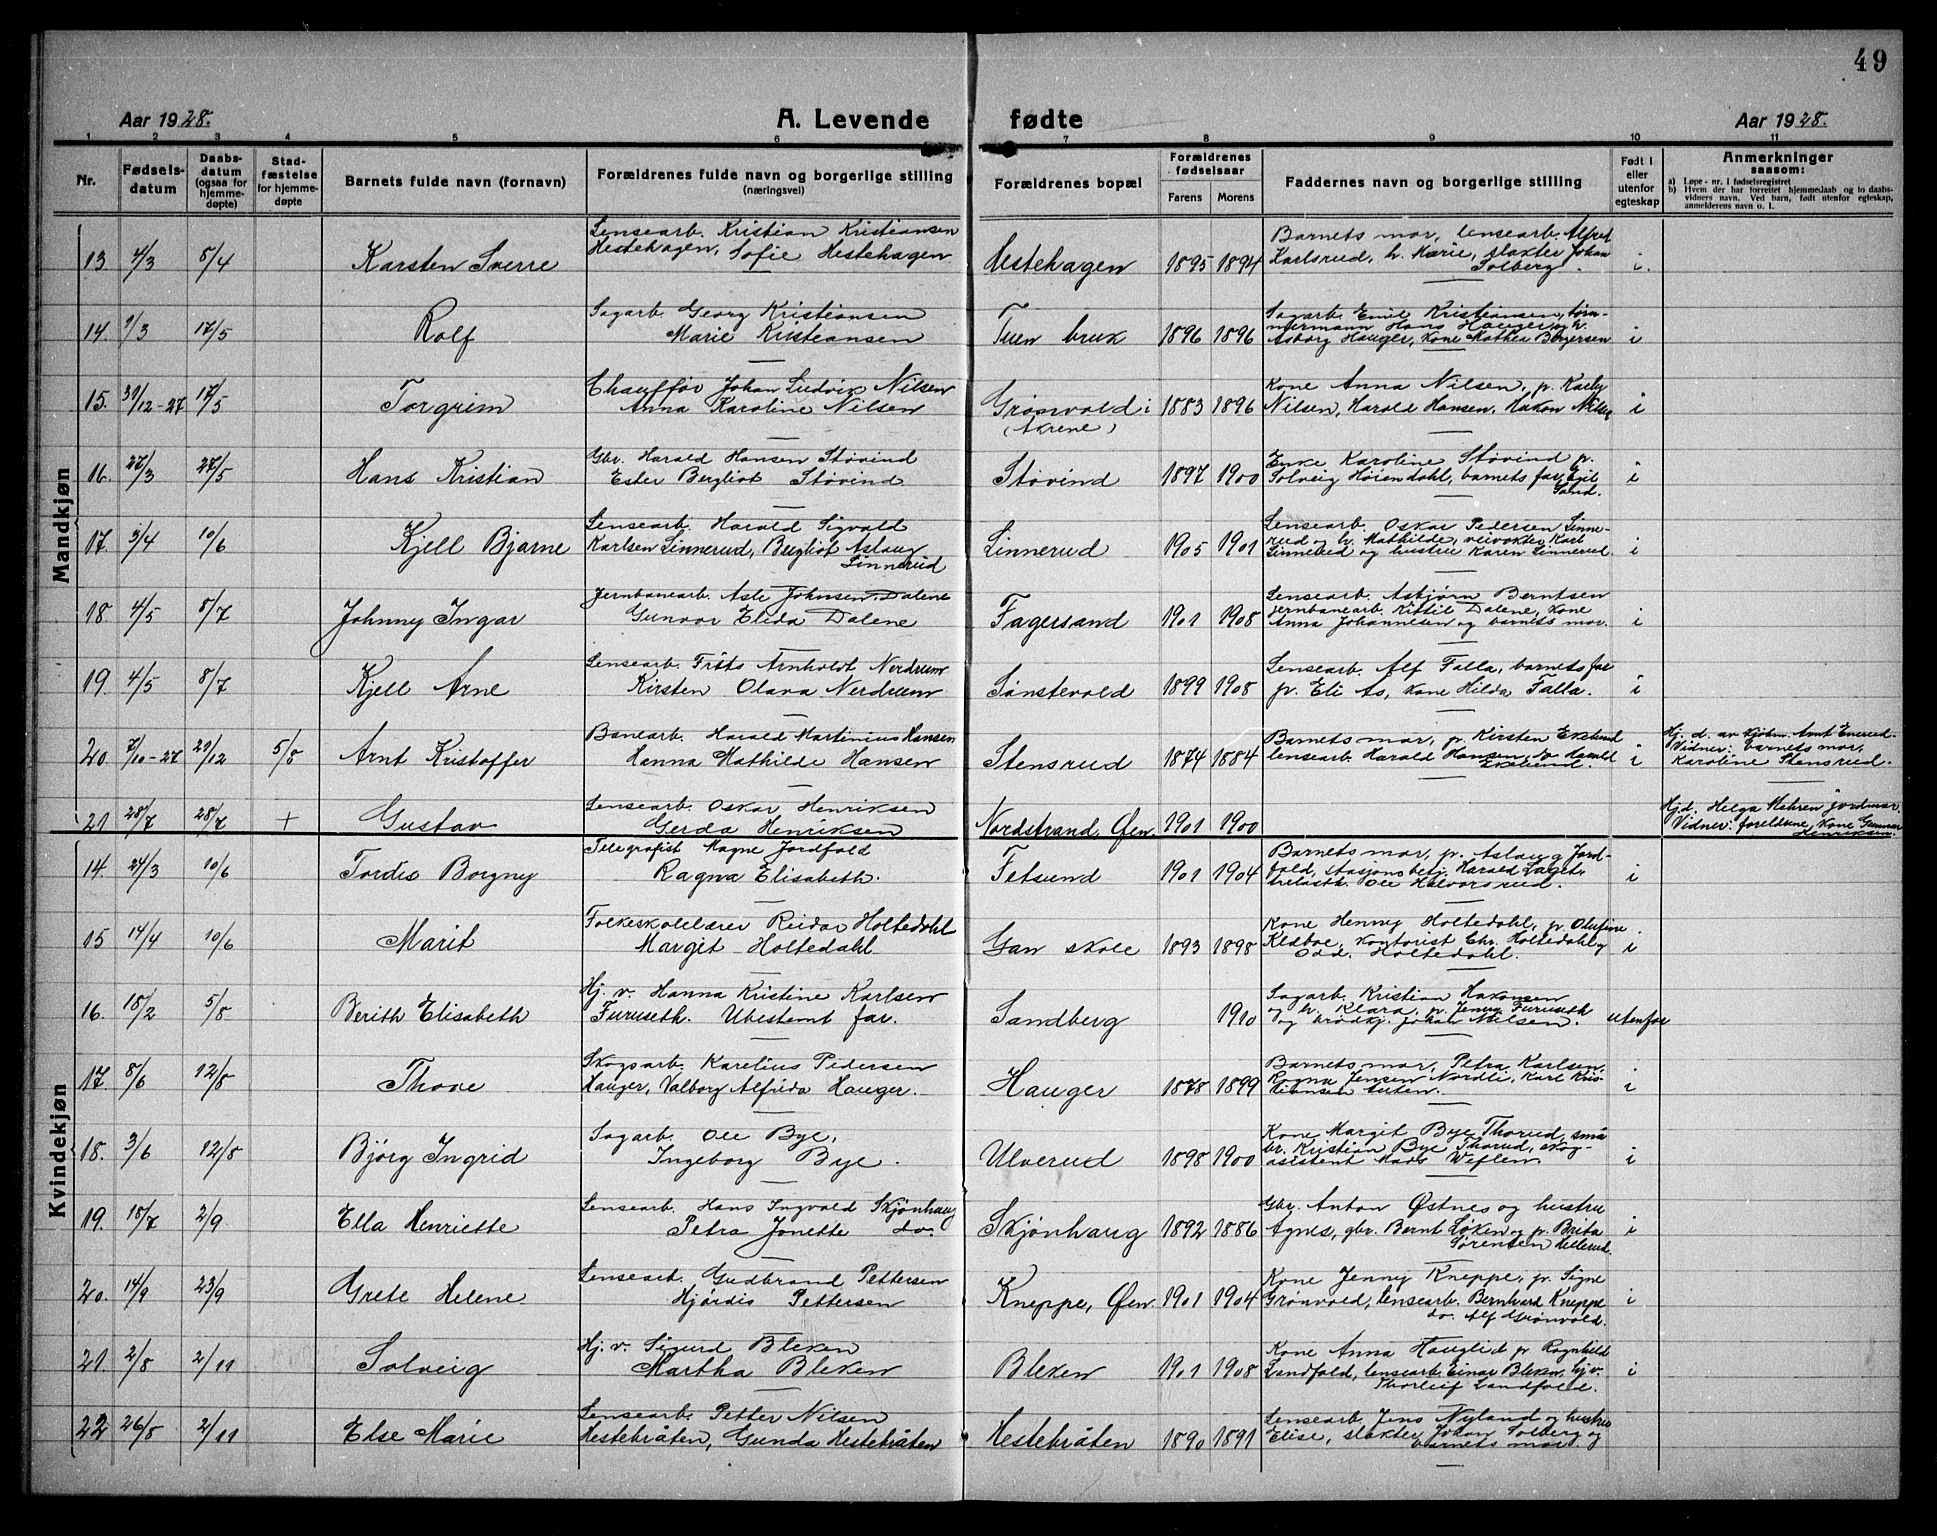 49
Aar 1928.
A. Levende
fødte
Aar 1928.
1 2 3 4 5 6 7 8 9 10 11
Nr.
Fødsels-
datum
Daabs-
datum
(ogsaa for
hjemme-
døpte)
Stad-
fæstelse
for hjemme-
døpte
Barnets fulde navn (fornavn)
Forældrenes fulde navn og borgerlige stilling
(næringsvei)
Forældrenes bopæl
Forældrenes
fødselsaar
Farens
Morens
Faddernes navn og borgerlige stilling
Født i
eller
utenfor
egteskap
Anmerkninger
saasom:
a) Løpe-nr. i fødselsregistret
b) Hvem der har forrettet hjemmedaab og to daabs-
vidners navn. Ved barn, født utenfor egteskap,
anmelderens navn o. l.
Mandkjøn
13 4/3 8/4 Karsten Sverre
Lensearb. Kristian Kristiansen
Hestehagen, Sofie Hestehagen
Hestehagen 1895 1894
Barnets mor, lensearb. Alfred
Karlsrud, h. Marie, slakter Johan
Solberg.
i.
14. 1/3 17/5 Rolf
Sagarb. Georg Kristiansen
Marie Kristiansen
Tuen bruk 1896 1896
Sagarb. Emil Kristiansen, tøm-
mermann Hans Hauger og h.
Asborg Hauger, kone Mathea Borgersen
i
15. 31/12-27 17/5 Torgrim
Chauffør Johan Ludvik Nilsen
Anna Karoline Nilsen
Grønvold i
(Akrene)
1883 1896
Kone Anna Nilsen, p. Karby
Nilsen, Harald Hansen, Hakon Nilsen
i
16. 27/3 27/5 Hans Kristian
Gbr. Harald Hansen Støvind
Ester Bergliot Støvind
Støvind 1897 1900
Enke Karoline Støvind p.
Solveig Høiendahl, barnets far, Egil
Sand.
i
17. 3/4 10/6 Kjell Bjarne
Lensearb. Harald Sigvald
Karlsen Linnerud, Bergliot Aslaug
Linnerud
Linnerud 1905 1901
Lensearb. Oskar Pedersen Linne-
rud og h. Mathilde, veivokter Karl
Linnerud og hustru Karen Linnerud.
i
18. 4/5 8/7 Johnny Ingar
Jernbanearb. Asle Johnsen Dalene
Gunvor Elida Dalene
Fagersand 1901 1908
Lensearb. Asbjørn Berntsen
jernbanearb. Kittil Dalene, kone
Anna Johannesen og barnets mor.
i
19. 4/5 8/7 Kjell Arne
Lensearb. Frits Arnholdt Nerdrum
Kirsten Olava Nerdrum
Sønstevold 1899 1908
Lensearb. Alf Falla, barnets far
p. Eli As, kone Hilda Falla.
i
20. 7/10-27 21/12 5/8 Arnt Kristoffer
Banearb. Harald Martinius Hansen
Hanna Mathilde Hansen
Stensrud 1874 1884
Barnets mor, p. Kirsten Ekelund
lensearb. Harald Hansen, do Harald
Ekelund.
i
Hj. d. av kjøbm. Arnt Enerud.
Vidner: barnets mor,
Karoline Stensrud.
21 28/7 28/7 + Gustav
Lensearb. Oskar Henriksen
Gerda Henriksen
Nordstrand, Øen 1901 1900
Hjd. Helga Mahren jordmor
Vidner: foreldrene, kone Gunvor
Henriksen.
Kvindekjøn
14. 24/3 10/6 Tordis Borgny
Telegrafist Magne Jordfald
Ragna Elisabeth.
Fetsund 1901 1904
Barnets mor, p. Aslaug Jord-
fald, stasjonsbetj. Harald Laget,
trelastk. Ole Halvorsrud.
i
15 14/4 10/6 Marit
Folkeskolelærer Reidar Holtedahl
Margit Holtedahl
Gan skole 1893 1898
Kone Henny Holtedahl, p. Olufine
Klæboe, kontorist Chr. Holtedahl og
Odd. Holtedahl.
i
16. 18/2 5/8 Berith Elisabeth
Hj. v. Hanna Kristine Karlsen
Furuseth. Ubestemt far.
Sandberg 1910
Sagarb. Kristian Hakonsen
og h. Klara, p. Jenny Furuseth
og brødkj. Johan Nilsen.
utenfor
17. 8/6 12/8 Thove
Skogsarb. Karelius Pedersen
Hauger, Valborg Alfrida Hauger.
Hauger 1878 1899
Barnets mor, Petra Karlsen,
Ragna Jensen Nordli, Karl Kris-
tiansen
i
18. 3/6 12/8 Bjørg Ingrid
Sagarb. Ole Bye,
Ingeborg Bye.
Ulverud 1898 1900
Kone Margit Bye Thorud, små-
br. Kristian Bye Thorud, skog-
asistent Mads Weflen.
i
19. 18/7 2/9 Ella Henriette
Lensearb. Hans Ingvald Skjønhaug
Petra Jonette do.
Skjønhaug 1892 1886
Gbr. Anton Østnes og hustru
Agnes, gbr. Bernt Løken og p. Brita
Sørensen Hellerud.
i
20. 14/9 23/9 Grete Helene
Lensearb. Gudbrand Pettersen
Hjørdis Pettersen
Kneppe, Øen 1901 1904
Kone Jenny Kneppe, p. Signe
Grønvold, lensearb. Bernhard Kneppe
do. Alf Grønvold.
i
21 2/8 2/11 Solveig
Hj. v. Sigurd Bleken
Martha Bleken
Bleken 1901 1908
Kone Anna Hauglid p. Ragnhild
Landfald, lensearb. Einar Bleken, hj.v.
Thorleif Landfald.
i
22 26/8 2/11 Else Marie
Lensearb. Petter Nilsen
Hestebråten, Gunda Hestebråten
Hestebråten 1890 1891
Lensearb. Jens Nyland og hustru
Elise, slakter Johan Solberg og
barnets mor.